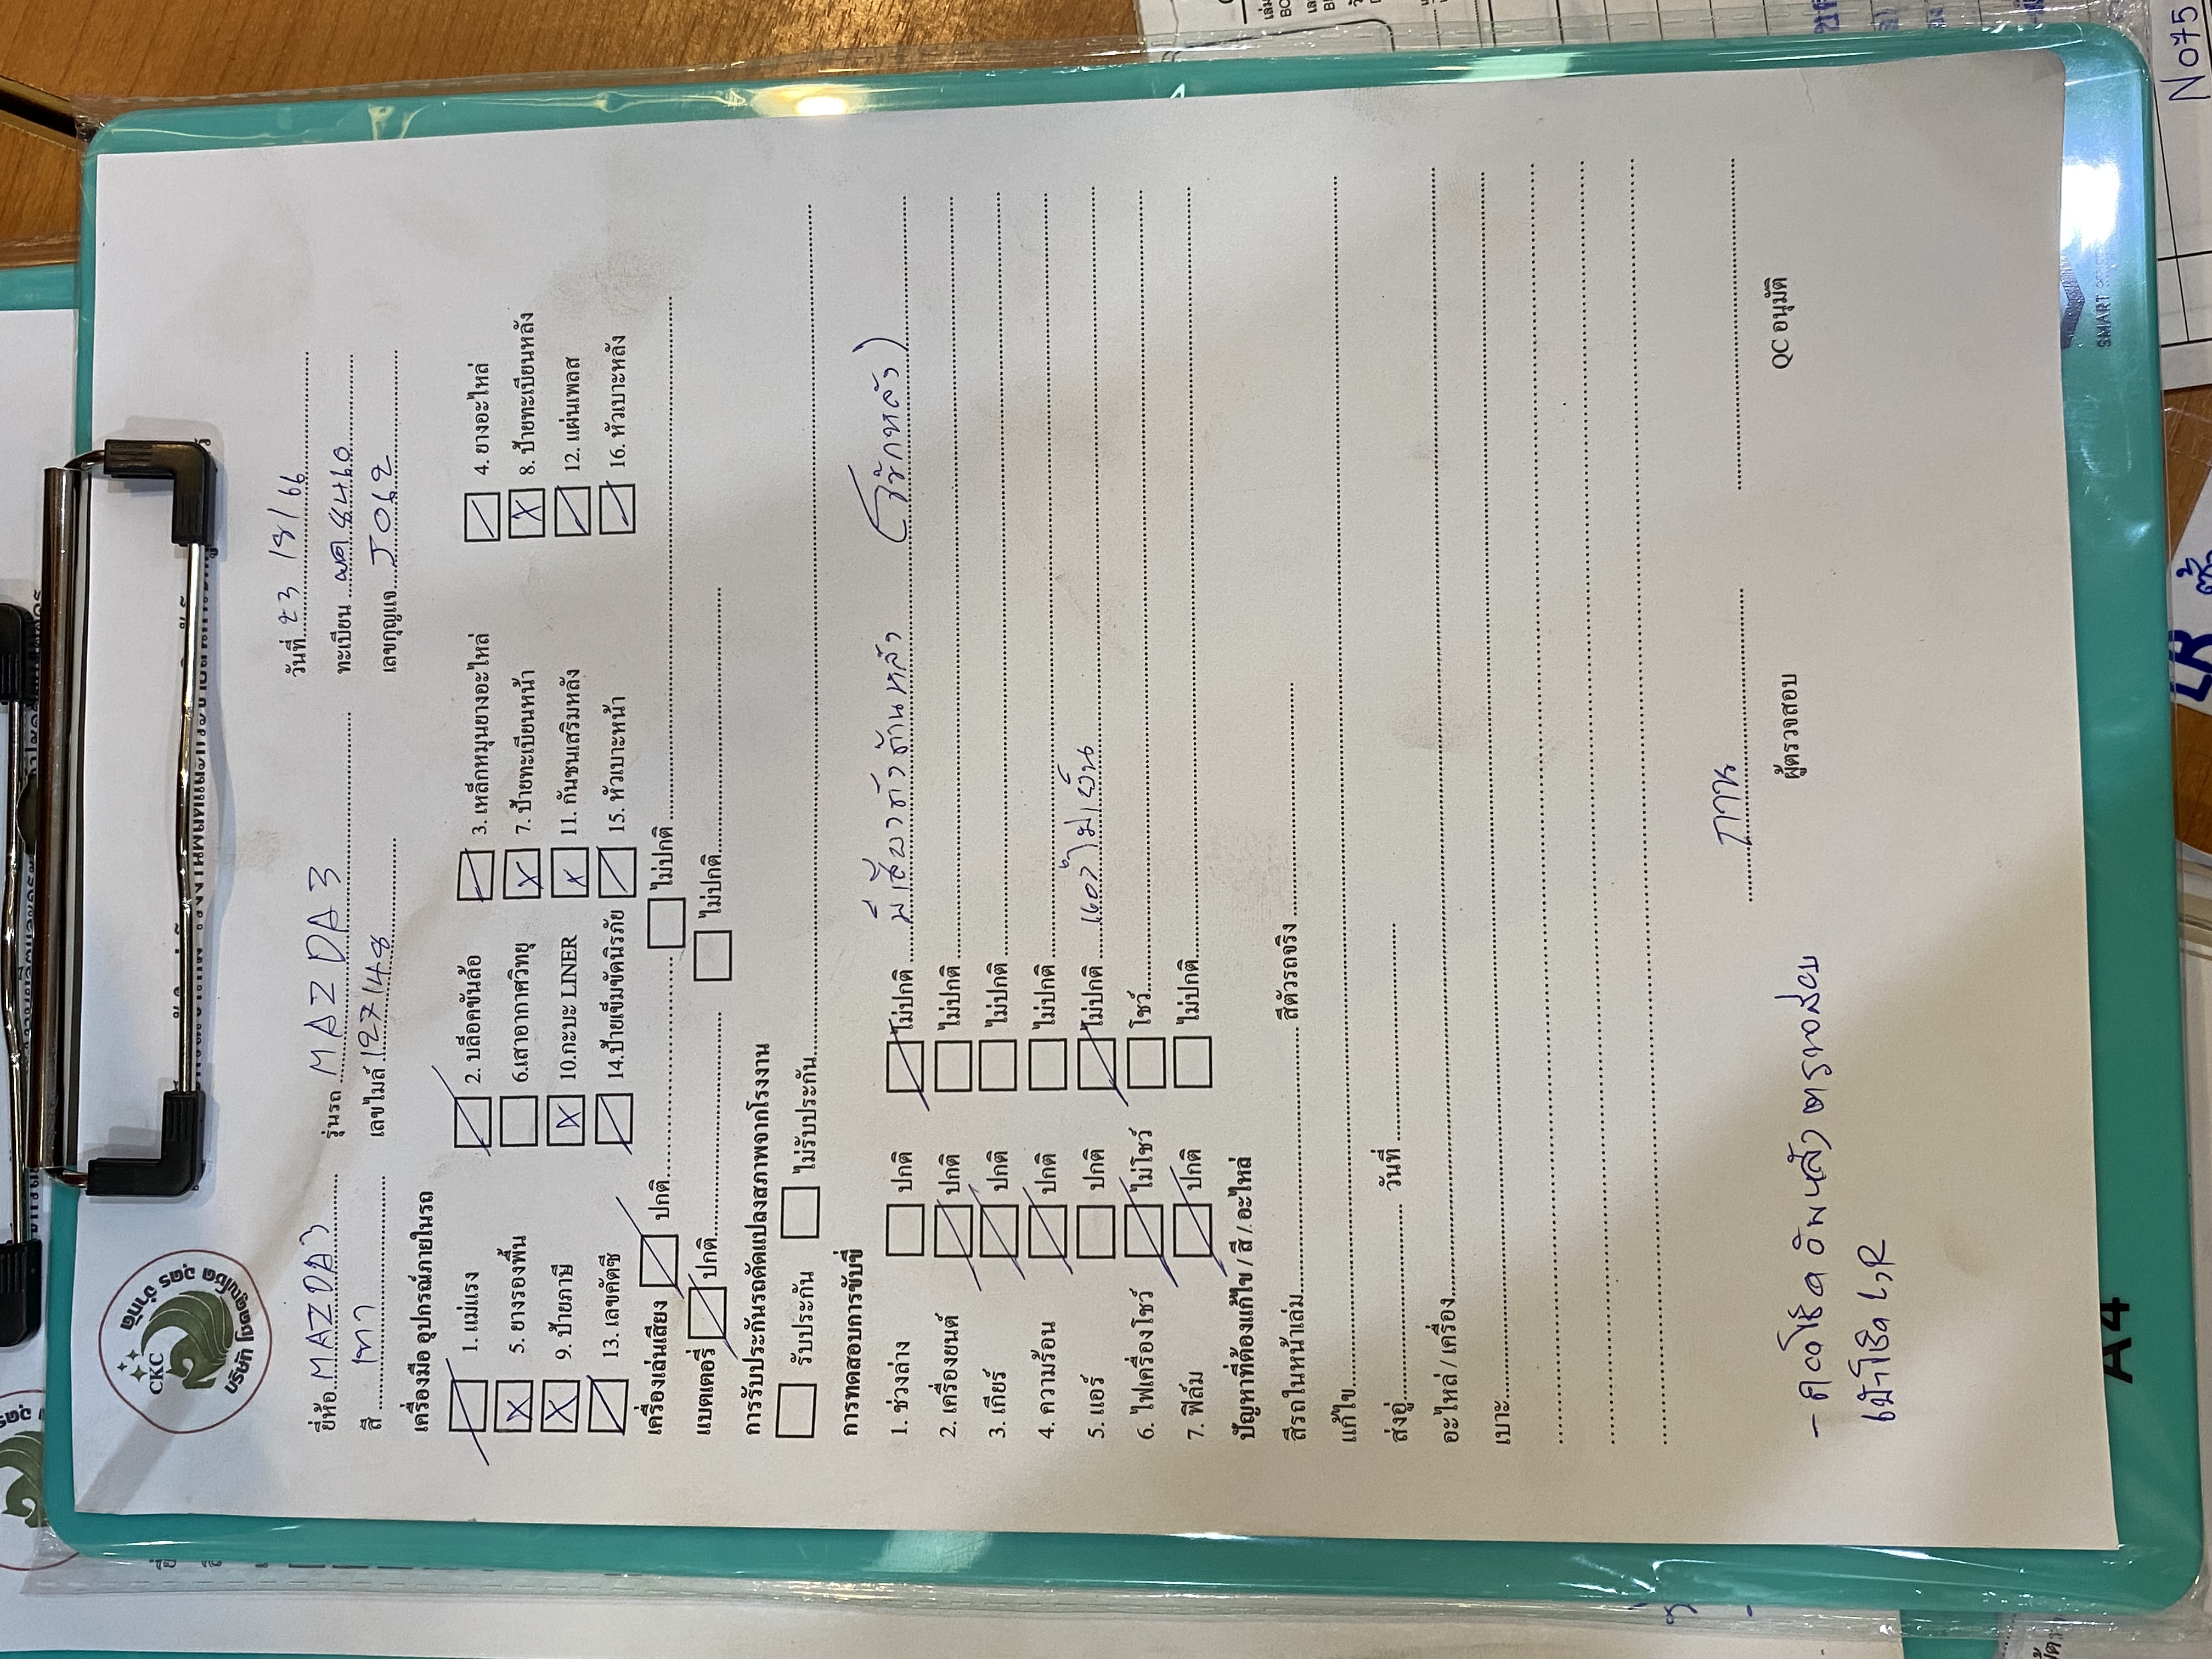 CKC
บริษัท ชูเกียรติยนต์ อุดร จำกัด
วันที่ 23 /8/ 66
ยี่ห้อ MAZDA3 รุ่นรถ MAZDA 3 ทะเบียน 8460
สี เทา เลขไมล์ 127148 เลขกุญแจ J062
เครื่องมือ อุปกรณ์ภายในรถ
1. แม่แรง 2. บล็อคขันล้อ 3. เหล็กหมุนยางอะไหล่ 4. ยางอะไหล่
X 5. ยางรองพื้น 6.เสาอากาศวิทยุ X 7. ป้ายทะเบียนหน้า X 8. ป้ายทะเบียนหลัง
X 9. ป้ายภาษี X 10.กะบะ LINER X 11. กันชนเสริมหลัง 12. แผ่นเพลส
13. เลขคัตซี 14.ป้ายเข็มขัดนิรภัย 15. หัวเบาะหน้า 16. หัวเบาะหลัง
เครื่องเล่นเสียง ปกติ ไม่ปกติ
แบตเตอรี่ ปกติ ไม่ปกติ
การรับประกันรถดัดแปลงสภาพจากโรงงาน
รับประกัน ไม่รับประกัน
การทดสอบการขับขี่
1. ช่วงล่าง ปกติ ไม่ปกติ มีเสียงดังด้านหลัง (โช๊คหลัง)
2. เครื่องยนต์ ปกติ ไม่ปกติ
3. เกียร์ ปกติ ไม่ปกติ
4. ความร้อน ปกติ ไม่ปกติ
5. แอร์ ปกติ ไม่ปกติ แอร์ไม่เย็น
6. ไฟเครื่องโชว์ ไม่โชว์ โชว์
7. ฟิล์ม ปกติ ไม่ปกติ
ปัญหาที่ต้องแก้ไข / สี / อะไหล่
สีรถในหน้าเล่ม สีตัวรถจริง
แก้ไข
ส่งอู่ วันที่
อะไหล่ / เครื่อง
เบาะ
ผู้ตรวจสอบ QC อนุมัติ
L,R
A4
SMART
No75
LR